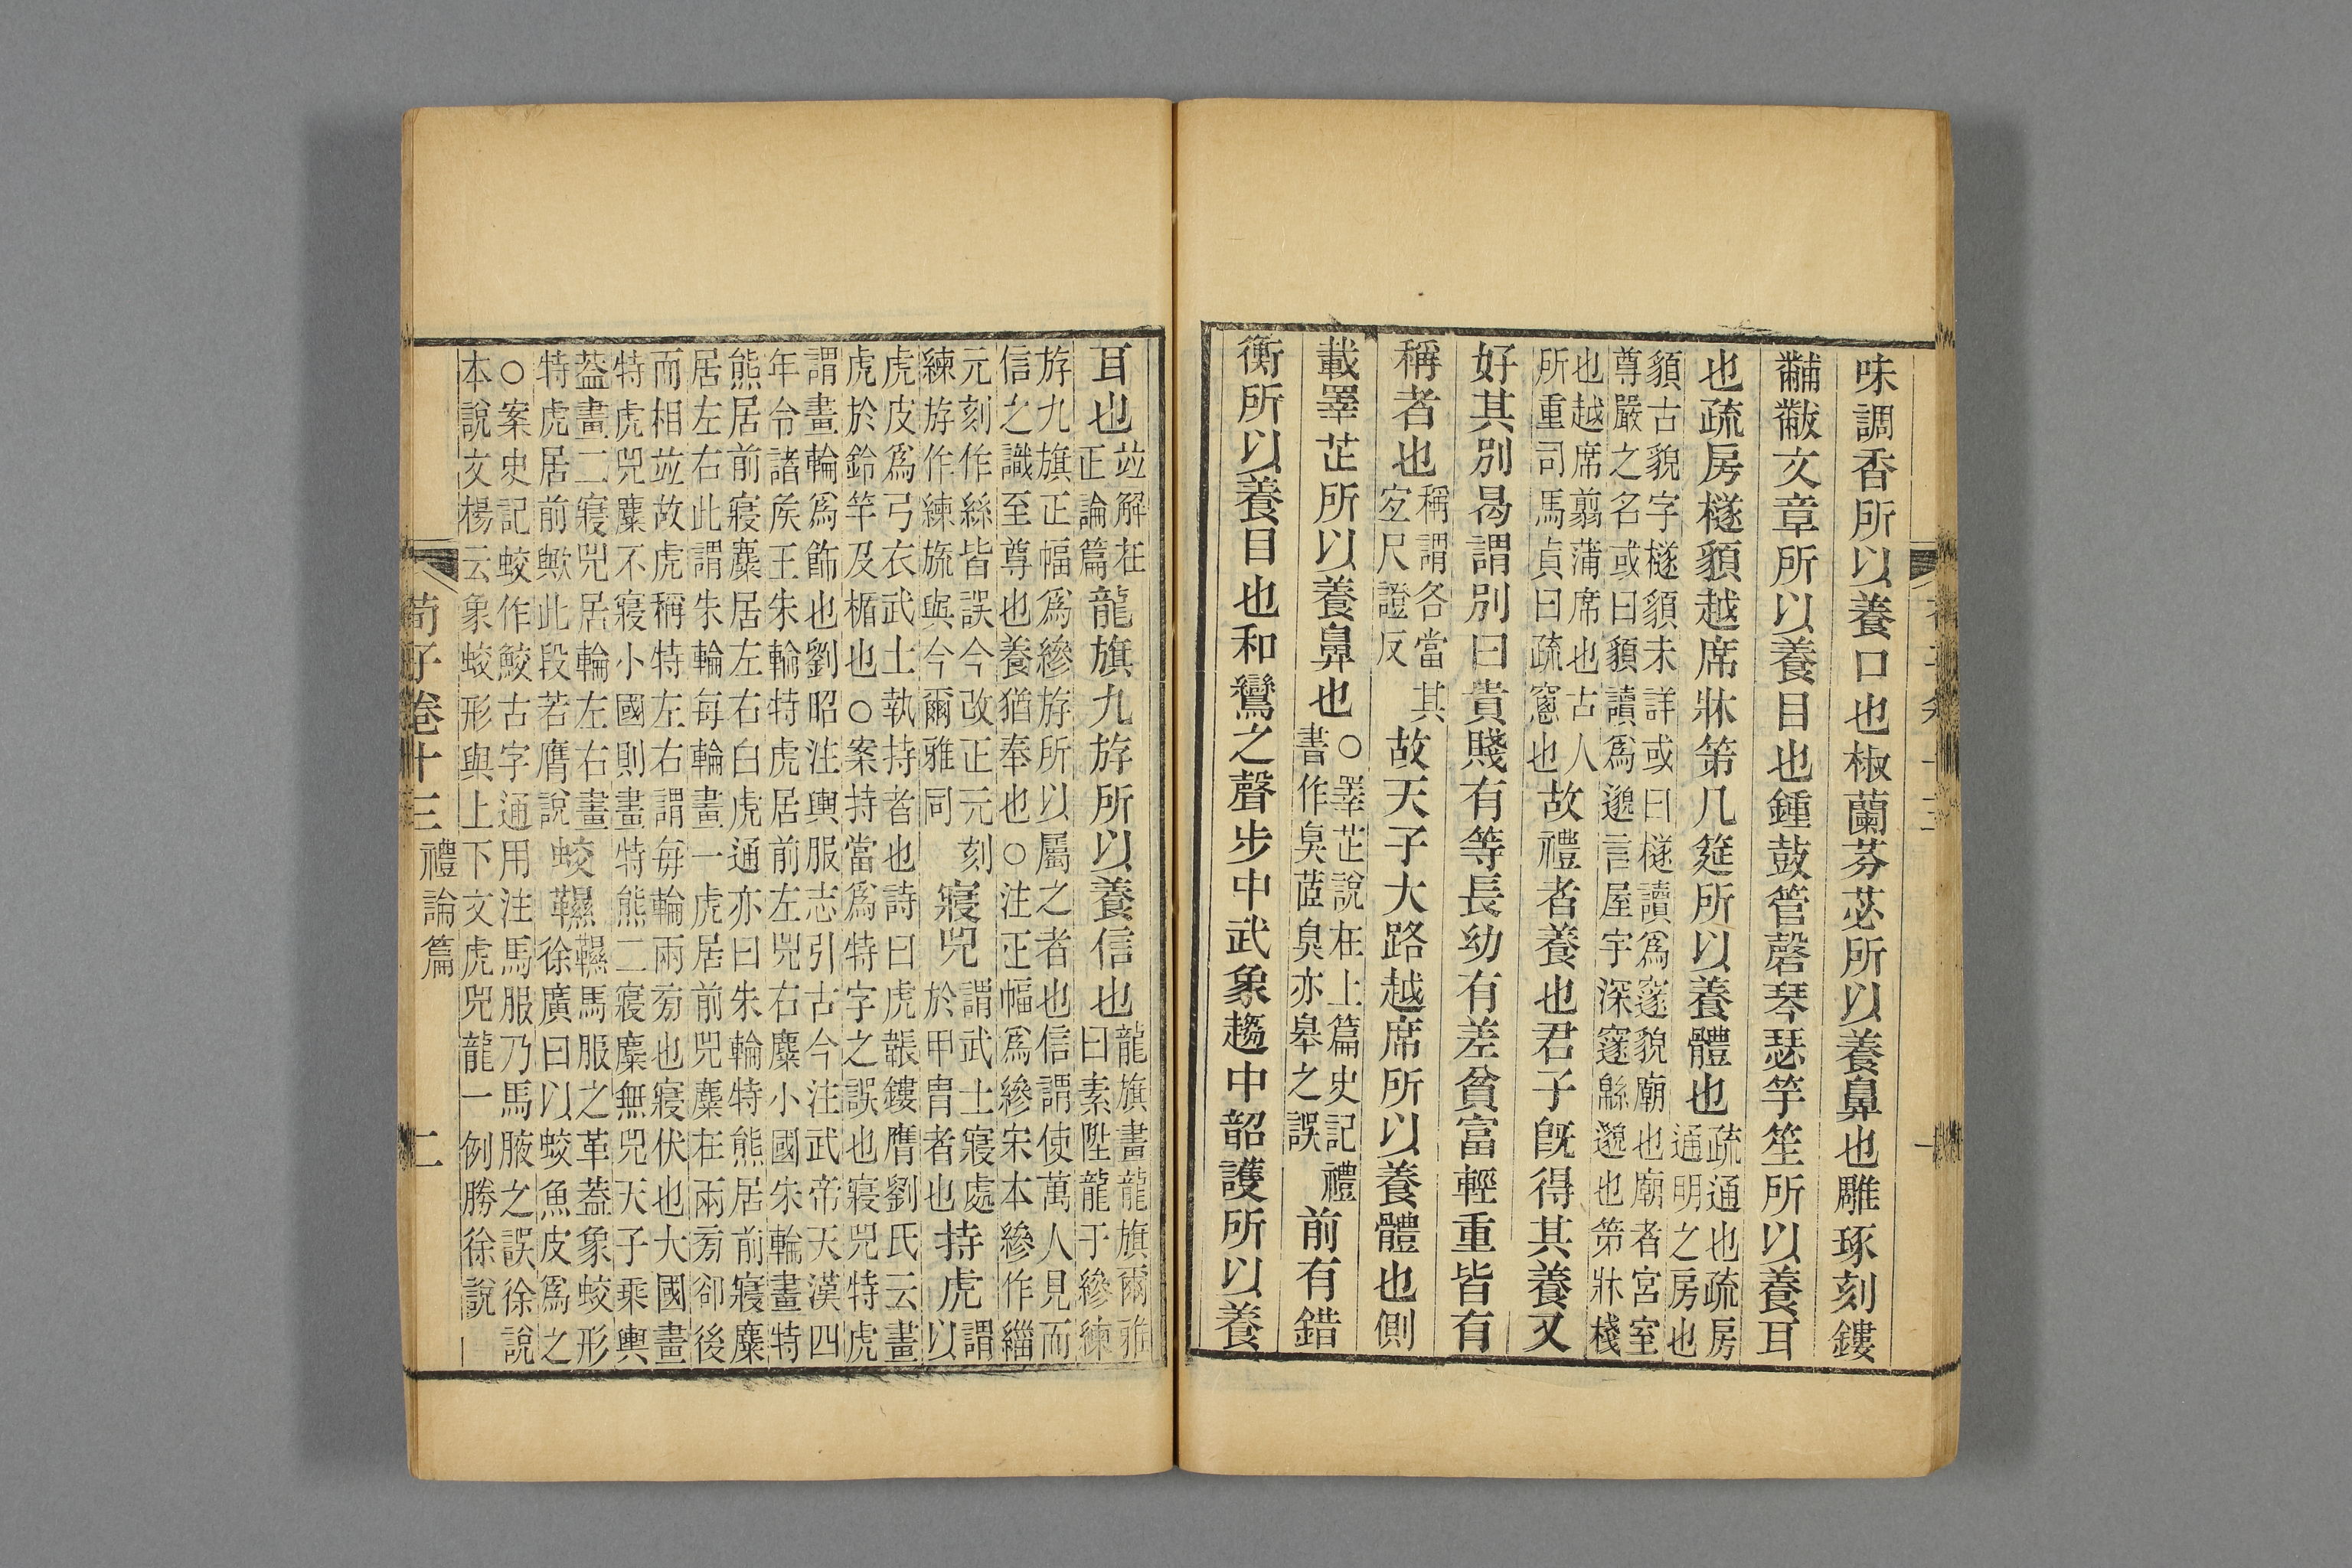 味調香所以養口也椒蘭芬苾所以養鼻也雕琢刻鏤
黼黻文章所以養目也鍾鼓管磬琴瑟竽笙所以養耳
也疏房檖䫉越席牀笫几筵所以養體也
疏通也疏房
通明之房也
䫉古貌字檖䫉未詳或曰檖讀爲邃貌廟也廟者宮室
尊嚴之名或曰䫉讀爲邈言屋宇深邃緜邈也笫牀棧
也越席翦蒲席也古人
所重司馬貞曰疏窻也
故禮者養也君子旣得其養又
好其別曷謂別曰貴賤有等長幼有差貧富輕重皆有
稱者也
稱謂各當其
宐尺證反
故天子大路越席所以養體也側
載睪芷所以養鼻也
○睪芷說在上篇史記禮
書作臭茝臭亦皋之誤
前有錯
衡所以養目也和鸞之聲步中武象趨中韶護所以養
耳也
竝解在
正論篇
龍旗九斿所以養信也
龍旗畫龍旗爾雅
曰素陞龍于縿練
斿九旗正幅爲縿斿所以屬之者也信謂使萬人見而
信之識至尊也養猶奉也○注正幅爲縿宋本縿作緇
元刻作絲皆誤今改正元刻
練斿作練旒與今爾雅同
寢兕
謂武士寢處
於甲冑者也
持虎
謂
以
虎皮爲弓衣武士執持者也詩曰虎韔鏤膺劉氏云畫
虎於鈴竿及楯也○案持當爲特字之誤也寢兕特虎
謂畫輪爲飾也劉昭注輿服志引古今注武帝天漢四
年令諸矦王朱輪特虎居前左兕右麋小國朱輪畫特
熊居前寢麋居左右白虎通亦曰朱輪特熊居前寢麋
居左右此謂朱輪每輪畫一虎居前兕麋在兩旁卻後
而相竝故虎稱特左右謂每輪兩旁也寢伏也大國畫
特虎兕麋不寢小國則畫特熊二寢麋無兕天子乘輿
葢畫二寢兕居輪左右畫
特虎居前歟此段若膺說
蛟韅
韅馬服之革葢象蛟形
徐廣曰以蛟魚皮爲之
○案史記蛟作鮫古字通用注馬服乃馬腋之誤徐說
本說文楊云象蛟形與上下文虎兕龍一例勝徐說
荀子卷十三 禮論篇 二